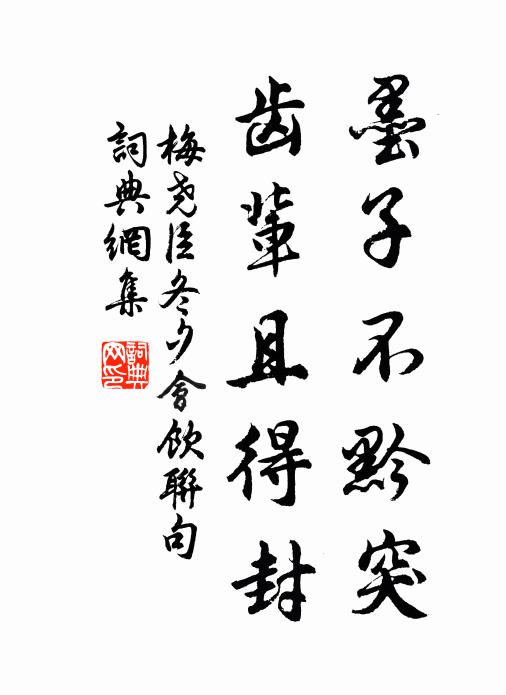 墨子不黔突
齿輩且得封
梅尧臣冬夕會飲聯句
詞典網集
詞典网印